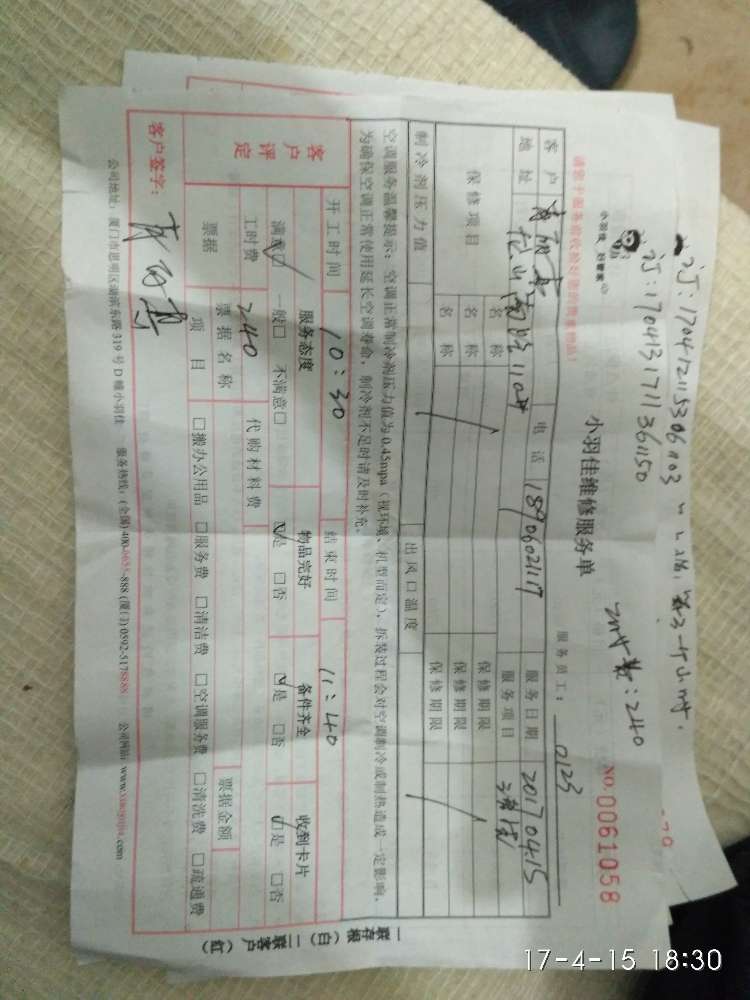 订:170412115306103
订:170413171136050
小羽佳维修服务单
NO.0061058
请您于服务验收后妥善保管您的贵重物品!
服务员工: 0123
客户
电话 18906021117
服务日期 20170415
地址
服务项目
保修项目
名称
保修期限
名称
保修期限
名称
保修期限
制冷剂压力值
出风口温度
空调服务温馨提示:空调正常制冷剂压力值为0.45mpa(视环境、机型而定),拆装过程会对空调制冷或制热造成一定影响,
为确保空调正常使用延长空调寿命,制冷剂不足时请及时补充。
开工时间 10:30 结束时间 11:40
客户评定
服务态度 物品完好 备件齐全 收到卡片
满意□ 一般□ 不满意□ □是 □否 □是 □否 □是 □否
工时费 240 代购材料费
票据 票据名称 票据金额
项目 □搬办公用品 □服务费 □清洁费 □空调服务费 □清洗费 □疏通费
客户签字:
公司地址:厦门市思明区湖滨东路319号D幢小羽佳 服务热线:(全国)400-0655-888 (厦门)0592-5178888 公司网站:www.xiaoyujia.com
一联存根(白)二联客户(红)
17-4-15 18:30